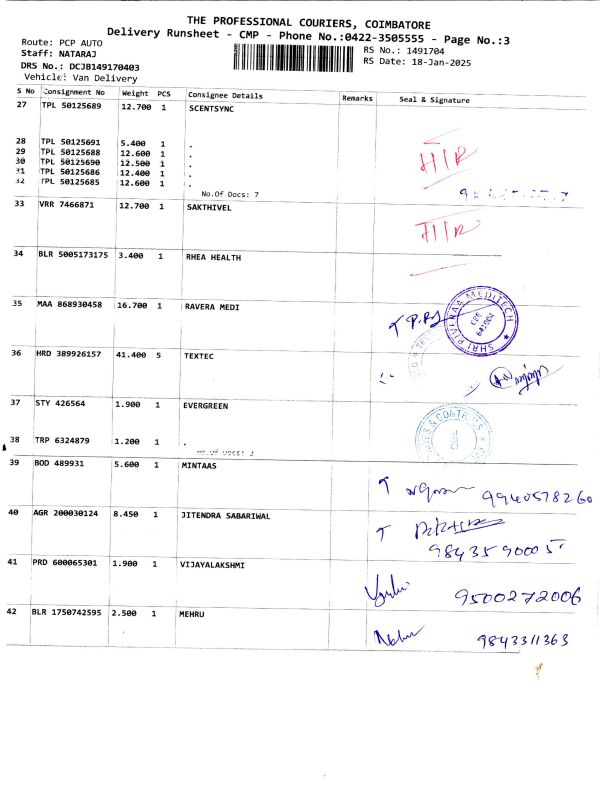 THE PROFESSIONAL COURIERS, COIMBATORE
Delivery Runsheet - CMP - Phone No.:0422-3505555 - Page No.:3
Route: PCP AUTO
RS No.: 1491704
Staff: NATARAJ
RS Date: 18-Jan-2025
DRS No.: DCJB149170403
Vehicle: Van Delivery
S No Consignment No Weight PCS Consignee Details Remarks Seal & Signature
27 TPL 50125689 12.700 1 SCENTSYNC
28 TPL 50125691 5.400 1 .
29 TPL 50125688 12.600 1 .
30 TPL 50125690 12.500 1 .
31 TPL 50125686 12.400 1 .
32 TPL 50125685 12.600 1 .
No.Of Docs: 7
33 VRR 7466871 12.700 1 SAKTHIVEL
34 BLR 5005173175 3.400 1 RHEA HEALTH
35 MAA 868930458 16.700 1 RAVERA MEDI
SHRI RIVERAA MEDITECH
CBE
641004
36 HRD 389926157 41.400 5 TEXTEC
37 STY 426564 1.900 1 EVERGREEN
& CONTROLS
CBE
38 TRP 6324879 1.200 1 .
No.Of Docs: 2
39 BOD 489931 5.600 1 MINTAAS
9940578260
40 AGR 200030124 8.450 1 JITENDRA SABARIWAL
9843590005
41 PRD 600065301 1.900 1 VIJAYALAKSHMI
9500272006
42 BLR 1750742595 2.500 1 MEHRU
9843311363